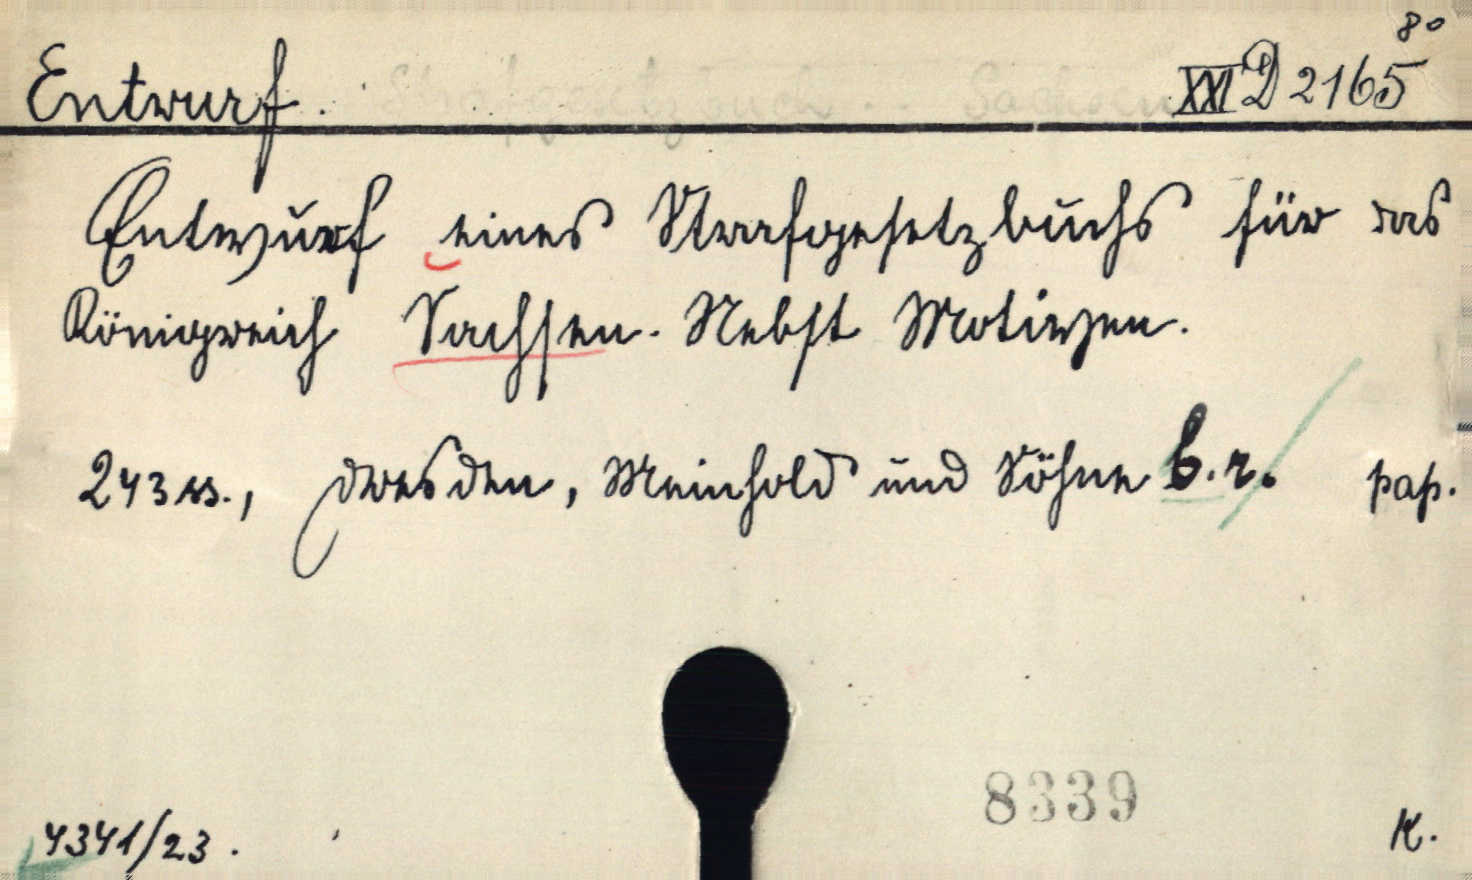 8°
Entwurf. XXI D 2165
Entwurf eines Strafgesetzbuchs für das
Königreich Sachsen. Nebst Motiven.
243 ss., Dresden, Meinhold und Söhne b.r. pap.
8339
4341/23. K.